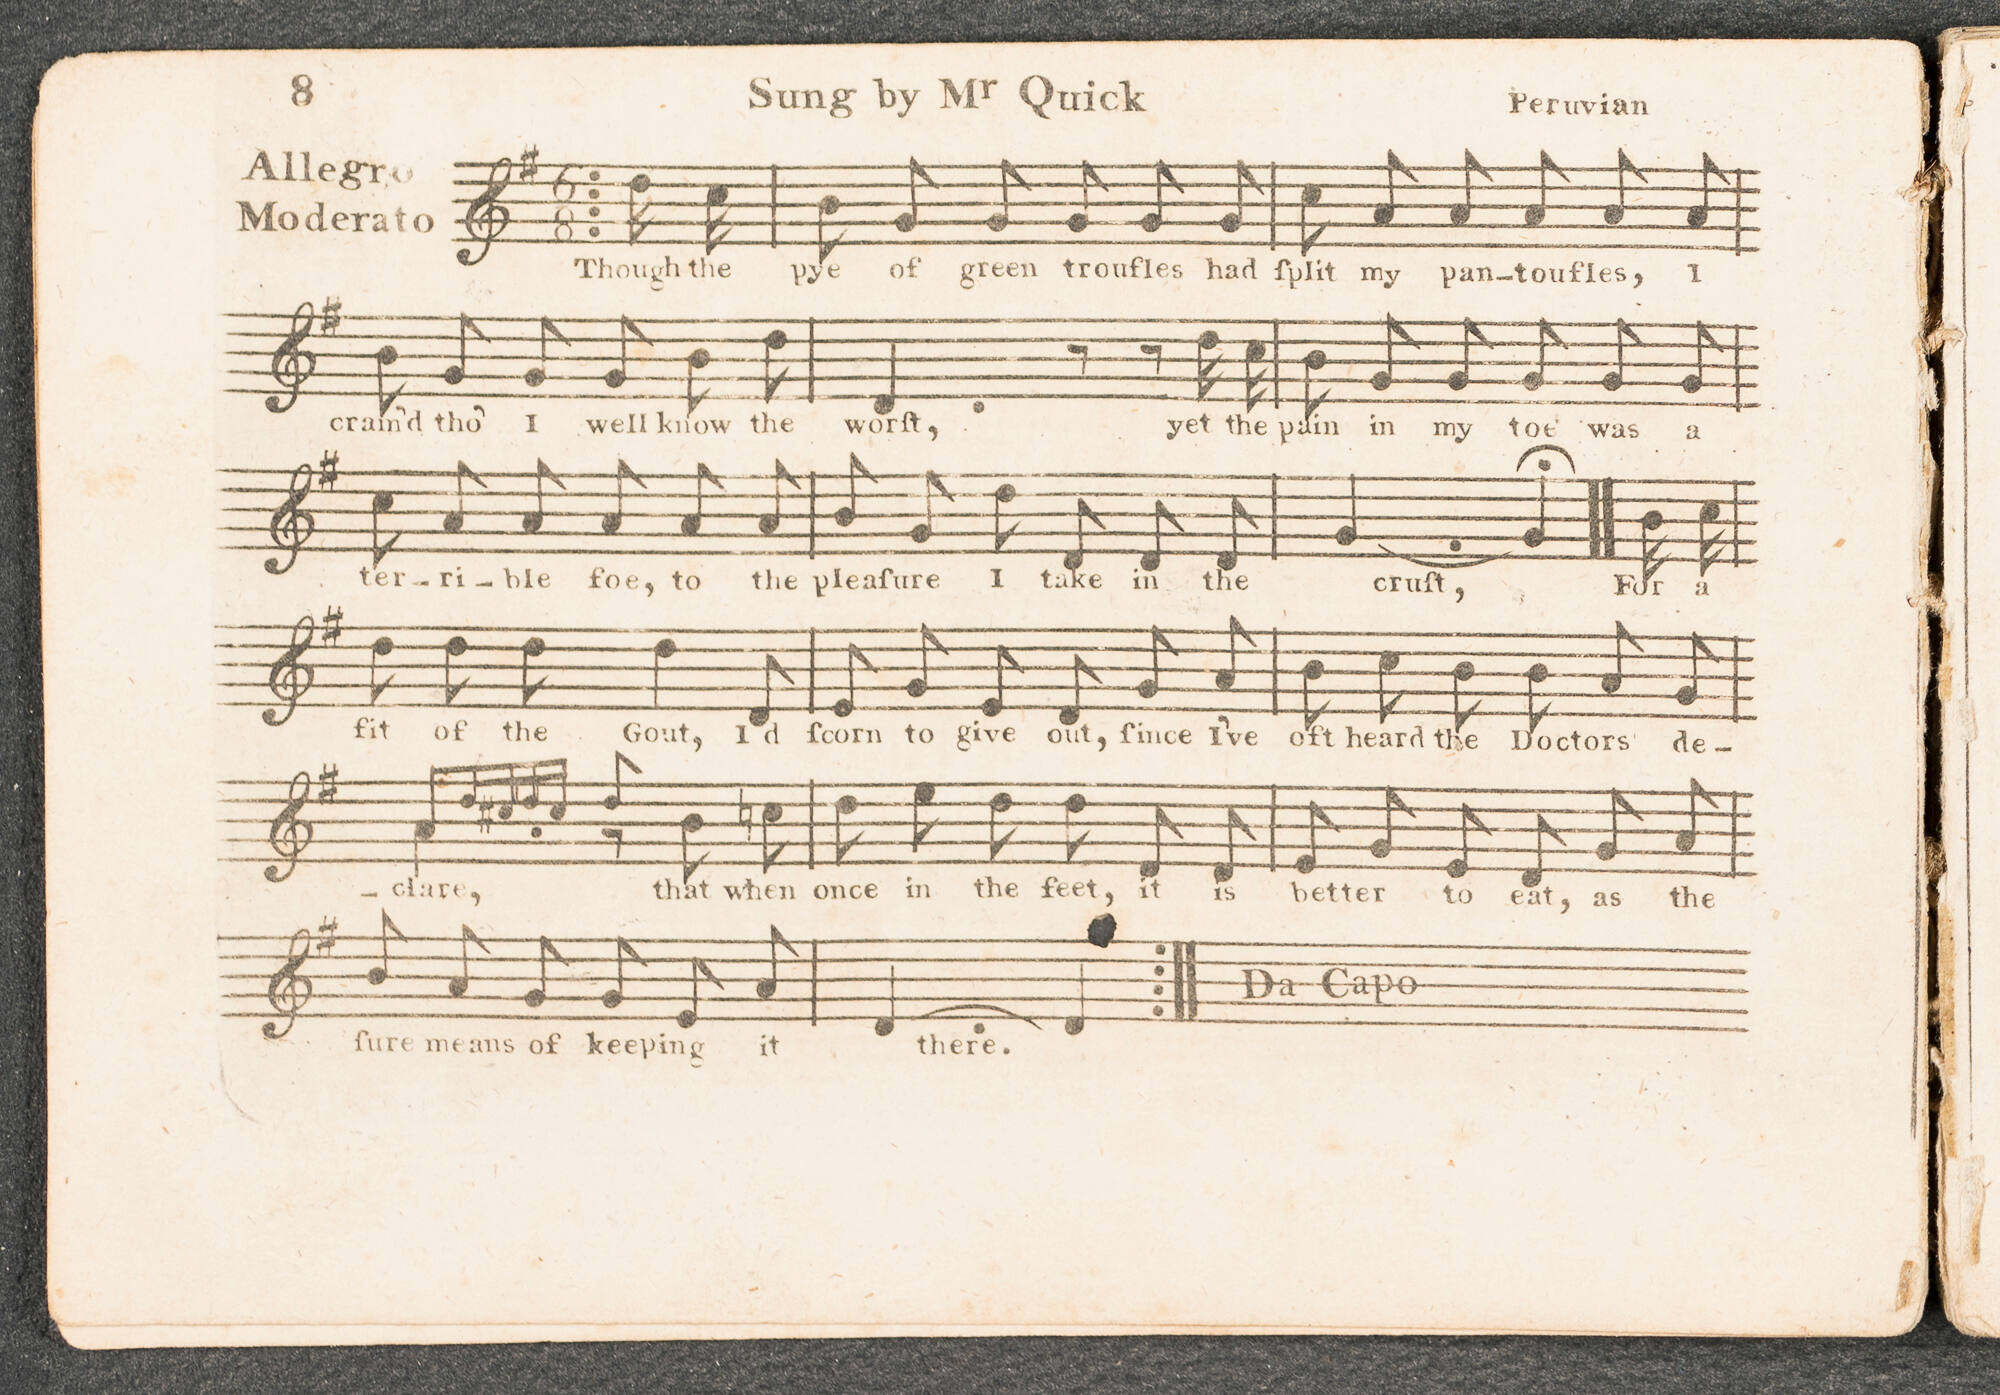 8 Sung by Mr Quick Peruvian
Allegro
Moderato
6
8
Though the pye of green troufles had ſplit my pan-toufles, I
cram'd tho' I well know the worſt, yet the pain in my toe was a
ter-ri-ble foe, to the pleaſure I take in the cruſt, For a
fit of the Gout, I'd ſcorn to give out, ſince I've oft heard the Doctors de-
-clare, that when once in the feet, it is better to eat, as the
Da Capo
ſure means of keeping it there.